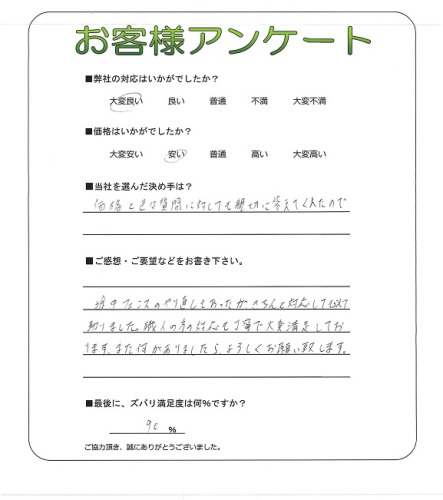 お客様アンケート
■弊社の対応はいかがでしたか?
大変良い 良い 普通 不満 大変不満
■価格はいかがでしたか?
大変安い 安い 普通 高い 大変高い
■当社を選んだ決め手は?
価格と色々質問に対しても親切に答えてくれたので
■ご感想・ご要望などをお書き下さい。
途中 のやり直しもあったがきちんと対応して
助りました。職人の方の対応も丁寧で大変満足してお
ります。また何かありましたら、よろしくお願い致します。
■最後に、ズバリ満足度は何%ですか?
90 %
ご協力頂き、誠にありがとうございました。